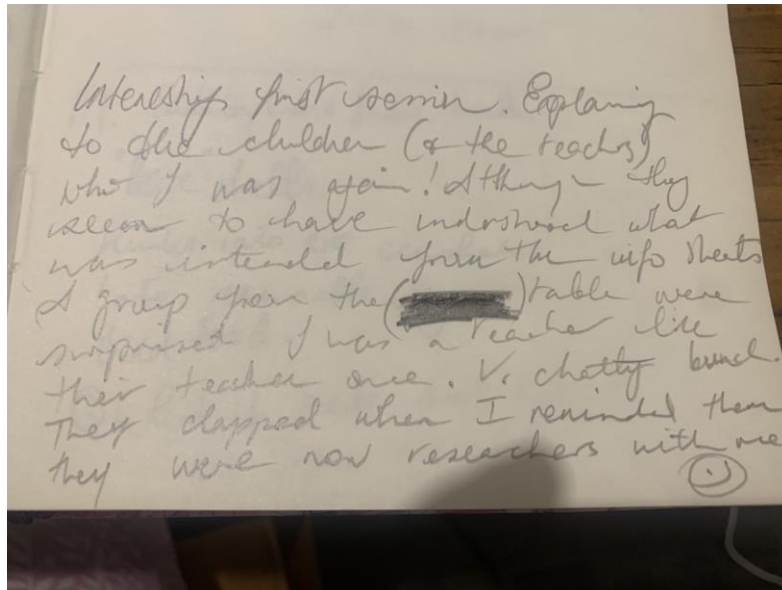 Interesting first session. Explaining
to the children (& the teachers)
who I was again! Although they
seem to have understood what
was intended from the info sheets
A group from the ( ) table were
surprised I was a teacher like
their teacher once. V. chatty bunch.
They clapped when I reminded them
they were now researchers with me